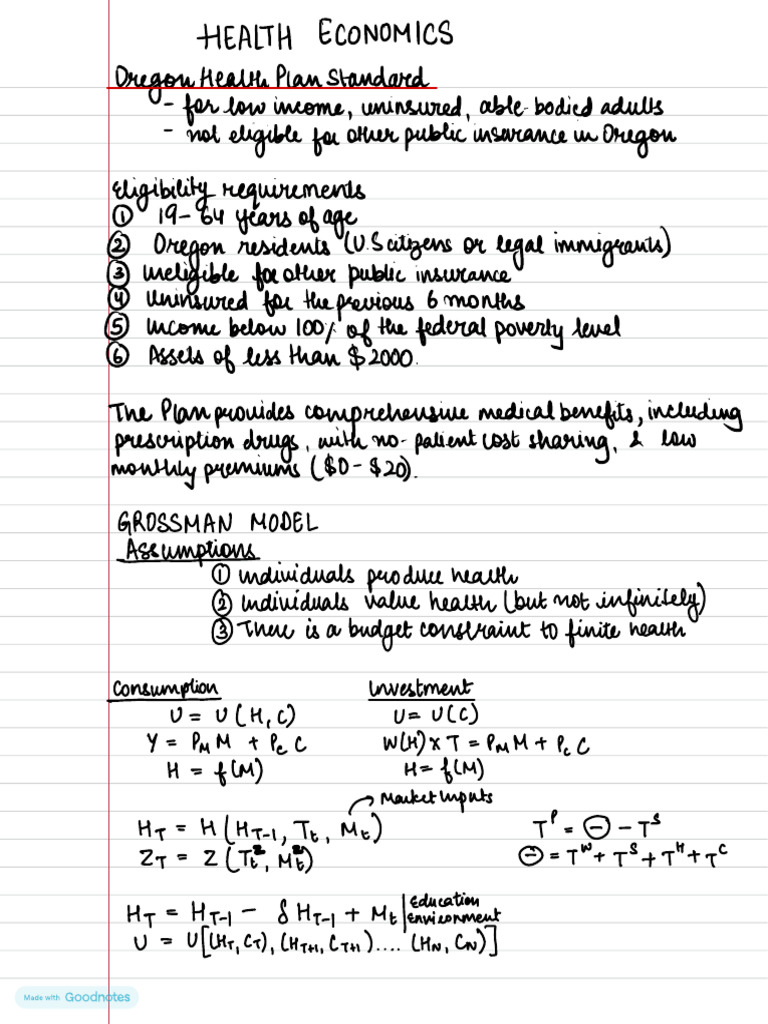 HEALTH ECONOMICS
Oregon Health Plan Standard
- for low income, uninsured, able-bodied adults
- not eligible for other public insurance in Oregon
Eligibility requirements
① 19-64 years of age
② Oregon residents (U.S citizens or legal immigrants)
③ Ineligible for other public insurance
④ Uninsured for the previous 6 months
⑤ Income below 100% of the federal poverty level
⑥ Assets of less than $2000.
The Plan provides comprehensive medical benefits, including
prescription drugs, with no-patient cost sharing, & low
monthly premiums ($0-$20).
GROSSMAN MODEL
Assumptions
① individuals produce health
② individuals value health (but not infinitely)
③ There is a budget constraint to finite health
Consumption Investment
U = U(H, C) U = U(C)
Y = P_M M + P_C C W(H) x T = P_M M + P_C C
H = f(M) H = f(M)
Market inputs
H_T = H(H_{T-1}, T_t, M_t) T^P = Θ - T^S
Z_T = Z(T_t^z, M_t^z) Θ = T^W + T^S + T^H + T^C
H_T = H_{T-1} - δ H_{T-1} + M_t | Education
Environment
U = U[(H_T, C_T), (H_{T+1}, C_{T+1}).... (H_N, C_N)]
Made with Goodnotes